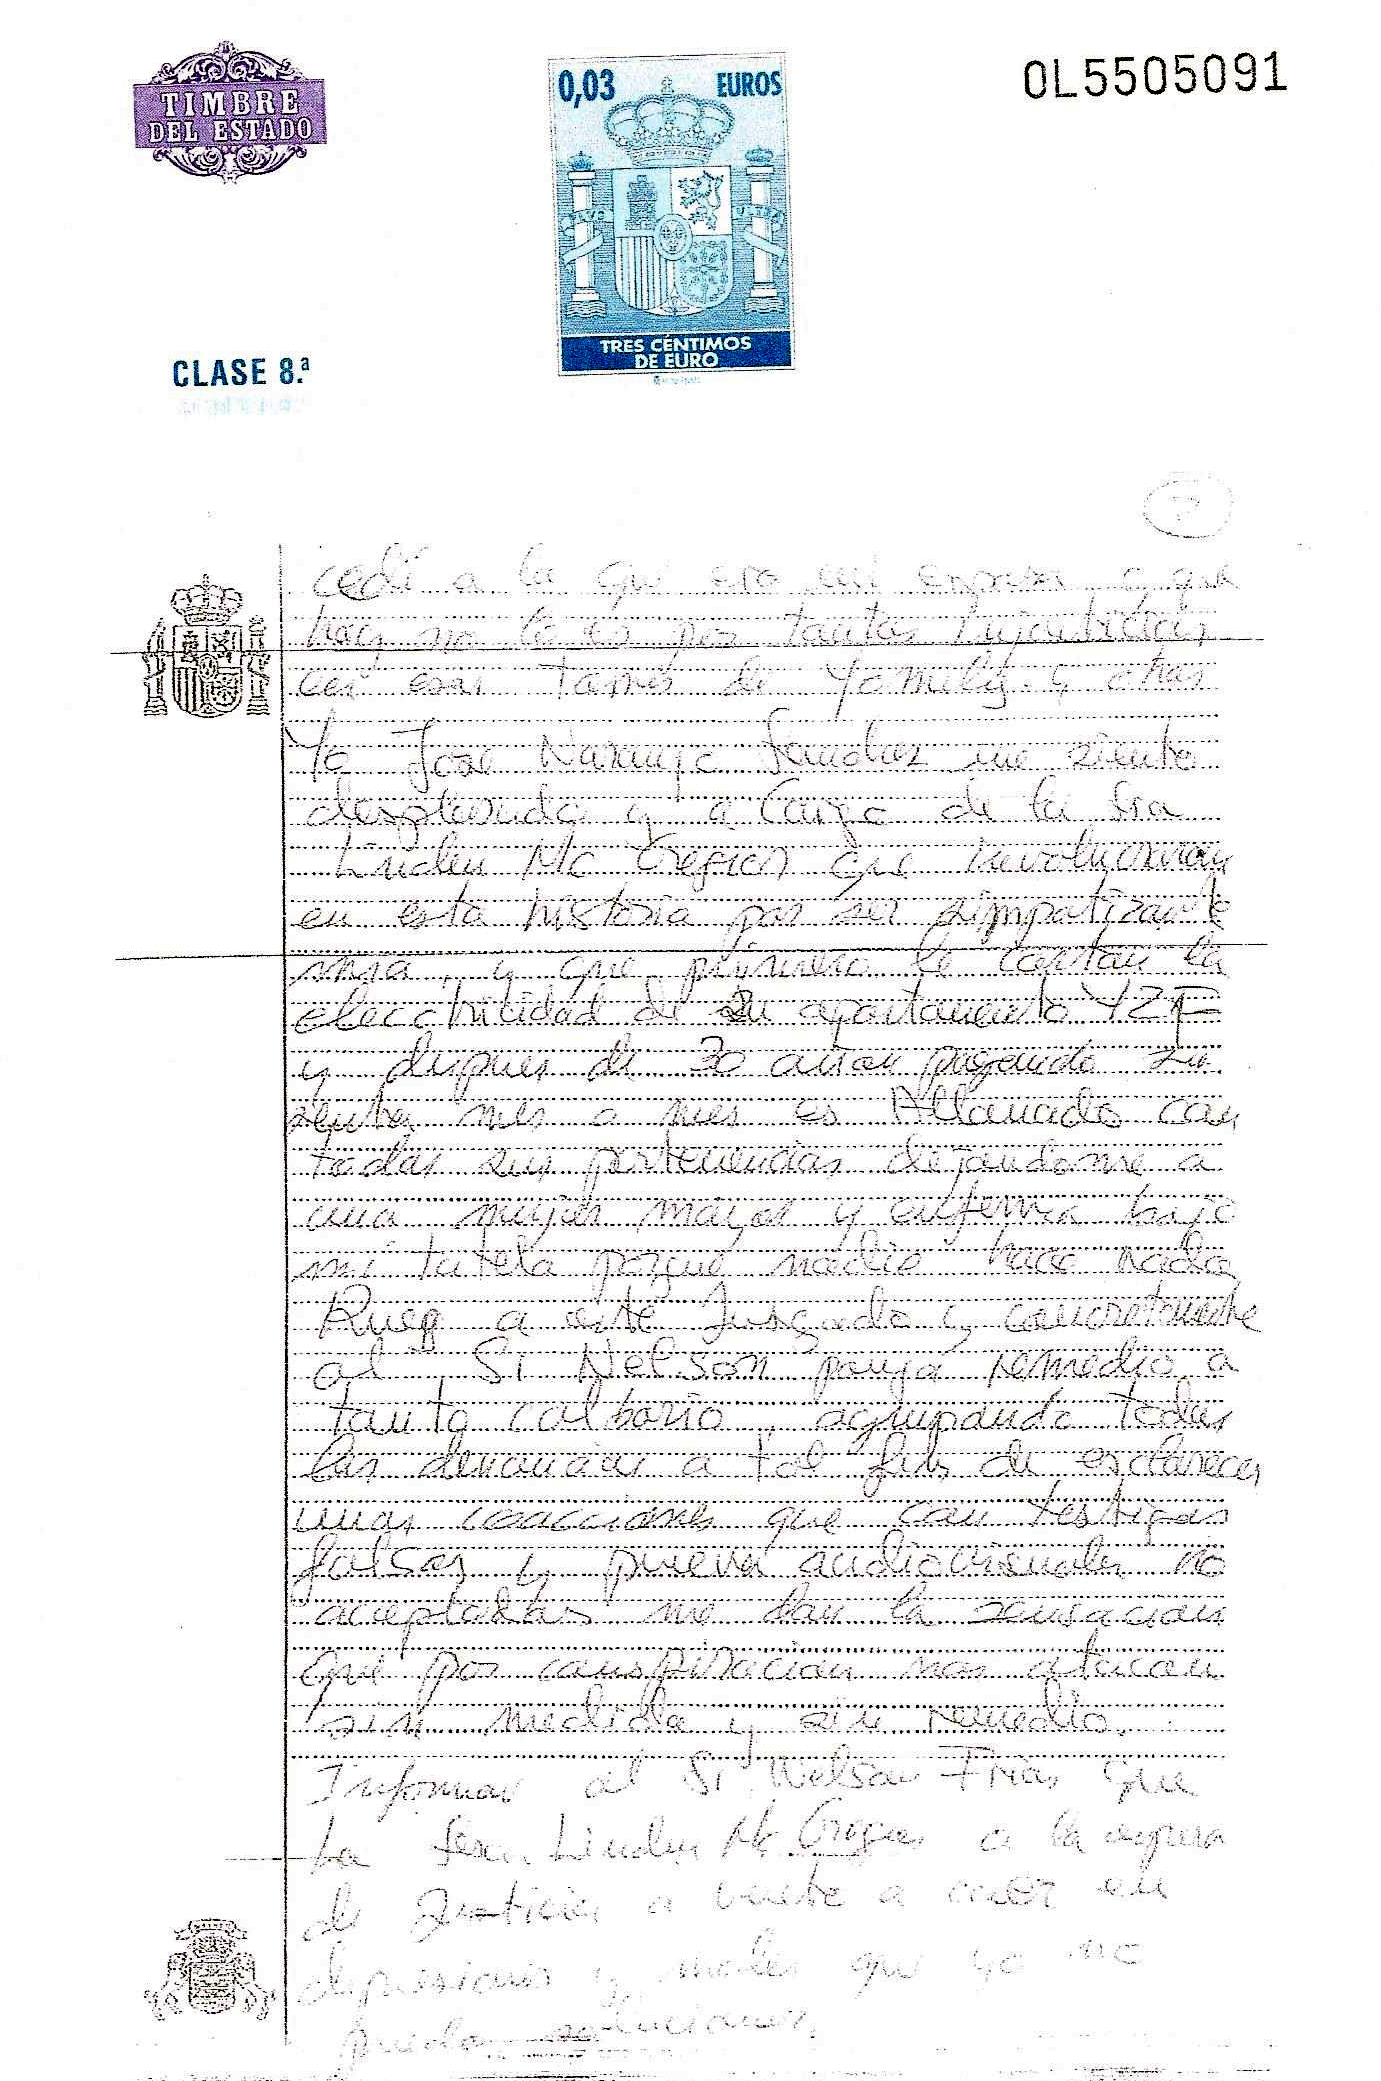 TIMBRE
DEL ESTADO
0,03 EUROS
TRES CÉNTIMOS
DE EURO
OL5505091
CLASE 8.ª
cedi a la que era mi esposa y que
hoy no lo es por tantas injusticias
de Yamily y otras
Yo José Naranjo Sanchez me siento
desplovido y a Cargo de la Sra
Linden Mc Gregior que involucraron
en esta historia por ser simpatizante
mia, y que primero le cortan la
electricidad de su apartamento 42F
y despues de 30 años pagando su
renta mes a mes es Allanado con
todas sus pertenencias dejandome a
una mujer mayor y enferma bajo
mi tutela porque nadie hace nada
Ruego a este Jusgado y concretamente
al Sr Nelson ponga remedio a
tanto calbario, agrupando todas
las denuncias a tal fin de esclarecer
unas coacciones que con testigos
falsos y prueva audiovisuales no
aceptadas me dan la sensacion
que por conspiracion nos atacan
sin medida y sin remedio.
Informar al Sr. Welson Frias que
La Sra. Linden Mc Gregior a la espera
de Justicia a vuelto a caer en
depresion y males que yo no
puedo solucionar.